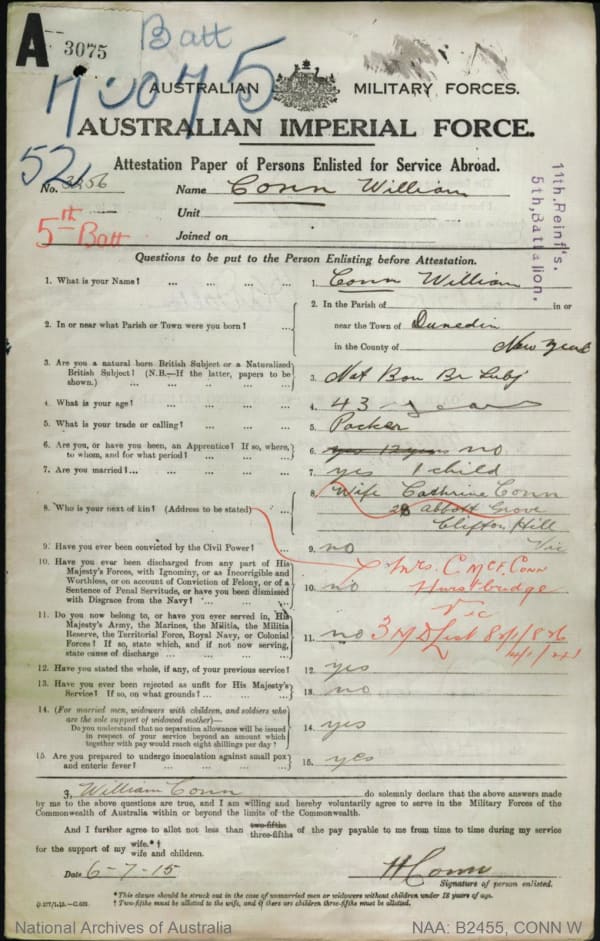 A 3075
Batt
AUSTRALIAN MILITARY FORCES.
AUSTRALIAN IMPERIAL FORCE.
Attestation Paper of Persons Enlisted for Service Abroad.
52
No. 3256 Name Conn William
Unit
5th Batt
Joined on
11th. Reinf's.
5th. Battalion.
Questions to be put to the Person Enlisting before Attestation.
1. What is your Name? ... ... ... ... 1. Conn William
2. In or near what Parish or Town were you born? ... 2. In the Parish of in or
near the Town of Dunedin
in the County of New Zeal
3. Are you a natural born British Subject or a Naturalized
British Subject? (N.B.—If the latter, papers to be
shown.) ... ... ... ... ... 3. Nat Bon Br Subj
4. What is your age? ... ... ... ... 4. 43 years
5. What is your trade or calling? ... ... ... 5. Packer
6. Are you, or have you been, an Apprentice? If so, where,
to whom, and for what period? ... ... ... 6. yes 12 years no
7. Are you married? ... ... ... ... 7. yes 1 child
8. Who is your next of kin? (Address to be stated) ... 8. Wife Cathrine Conn
28 Abbott Grove
Clifton Hill
Vic
9. Have you ever been convicted by the Civil Power? ... 9. no
Mrs. C. McF. Conn
Hurstbridge
Vic
10. Have you ever been discharged from any part of His
Majesty's Forces, with Ignominy, or as Incorrigible and
Worthless, or on account of Conviction of Felony, or of a
Sentence of Penal Servitude, or have you been dismissed
with Disgrace from the Navy? ... ... ... 10. no
11. Do you now belong to, or have you ever served in, His
Majesty's Army, the Marines, the Militia, the Militia
Reserve, the Territorial Force, Royal Navy, or Colonial
Forces? If so, state which, and if not now serving,
state cause of discharge ... ... ... 11. no
3 MD List
12. Have you stated the whole, if any, of your previous service? 12. yes
13. Have you ever been rejected as unfit for His Majesty's
Service? If so, on what grounds? ... ... ... 13. no
14. (For married men, widowers with children, and soldiers who
are the sole support of widowed mother)—
Do you understand that no separation allowance will be issued
in respect of your service beyond an amount which
together with pay would reach eight shillings per day? 14. yes
15. Are you prepared to undergo inoculation against small pox
and enteric fever? ... ... ... ... 15. yes
I, William Conn do solemnly declare that the above answers made
by me to the above questions are true, and I am willing and hereby voluntarily agree to serve in the Military Forces of the
Commonwealth of Australia within or beyond the limits of the Commonwealth.
And I further agree to allot not less than two-fifths
three-fifths of the pay payable to me from time to time during my service
for the support of my wife.*†
wife and children.
Date 6-7-15 W Conn
Signature of person enlisted.
* This clause should be struck out in the case of unmarried men or widowers without children under 18 years of age.
† Two-fifths must be allotted to the wife, and if there are children three-fifths must be allotted.
National Archives of Australia NAA: B2455, CONN W